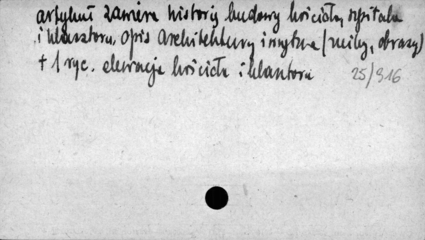 artykuł zawiera historię budowy kościoła, szpitala
i klasztoru, opis architektury i wnętrza (rzeźby, obrazy)
+ 1 ryc. elewacja kościoła i klasztoru
25/916